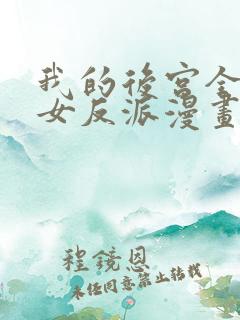 我的後宮全
女反派漫畫
程鏡恩
未经同意禁止转载